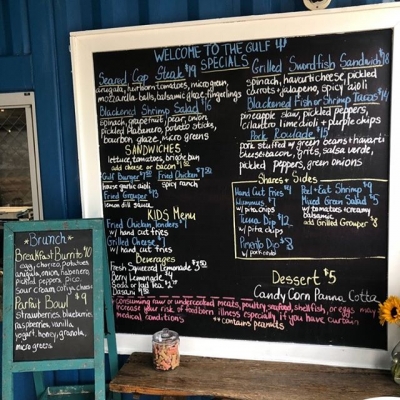 WELCOME TO THE GULF
SPECIALS
Seared Cap Steak $19
arugula, heirloom tomatoes, microgreen,
mozzarella balls, balsamic glaze, fingerlings
Blackened Shrimp Salad $16
spinach, grapefruit, pear, onion
pickled habanero, potato sticks,
bourbon glaze, micro greens
Grilled Swordfish Sandwich $18
spinach, havarti cheese, pickled
carrots + jalapeno, spicy aioli
Blackened Fish or Shrimp Tacos $14
pineapple slaw, pickled pepper,
cilantro lime aioli + purple chips
Pork Roulade $15
pork stuffed w/ green beans + havarti
cheese + bacon, grits, salsa verde,
pickled peppers, green onions
SANDWICHES
lettuce, tomatoes, brioche bun
add cheese or bacon
Gulf Burger Fried Chicken
house garlic aioli spicy ranch
Fried Grouper
lemon dill sauce
KIDS Menu
Fried Chicken Tenders $7
w/ hand cut fries
Grilled Cheese $7
w/ hand cut fries
Beverages
Fresh Squeezed Lemonade
Berry Lemonade
Soda or Iced Tea
Dasani
Shares + Sides
Hand Cut Fries $4
Hummus $7
w/ pita chips
Tuna Dip $12
w/ pita chips
Pimento Dip $8
w/ pork rinds
Peel + Eat Shrimp
Mixed Green Salad $5
w/ tomatoes + creamy
balsamic
add Grilled Grouper $8
Dessert $5
Candy Corn Panna Cotta
*Consuming raw or undercooked meats, poultry, seafood, shellfish, or eggs may
increase your risk of foodborn illness especially if you have certain
medical conditions
**contains peanuts
*Brunch*
Breakfast Burrito $10
eggs, chorizo, potatoes,
onion, habanero,
pickled peppers, pico,
sour cream, cotija cheese
Parfait Bowl $9
strawberries, blueberries,
raspberries, vanilla
yogurt, honey, granola,
micro greens